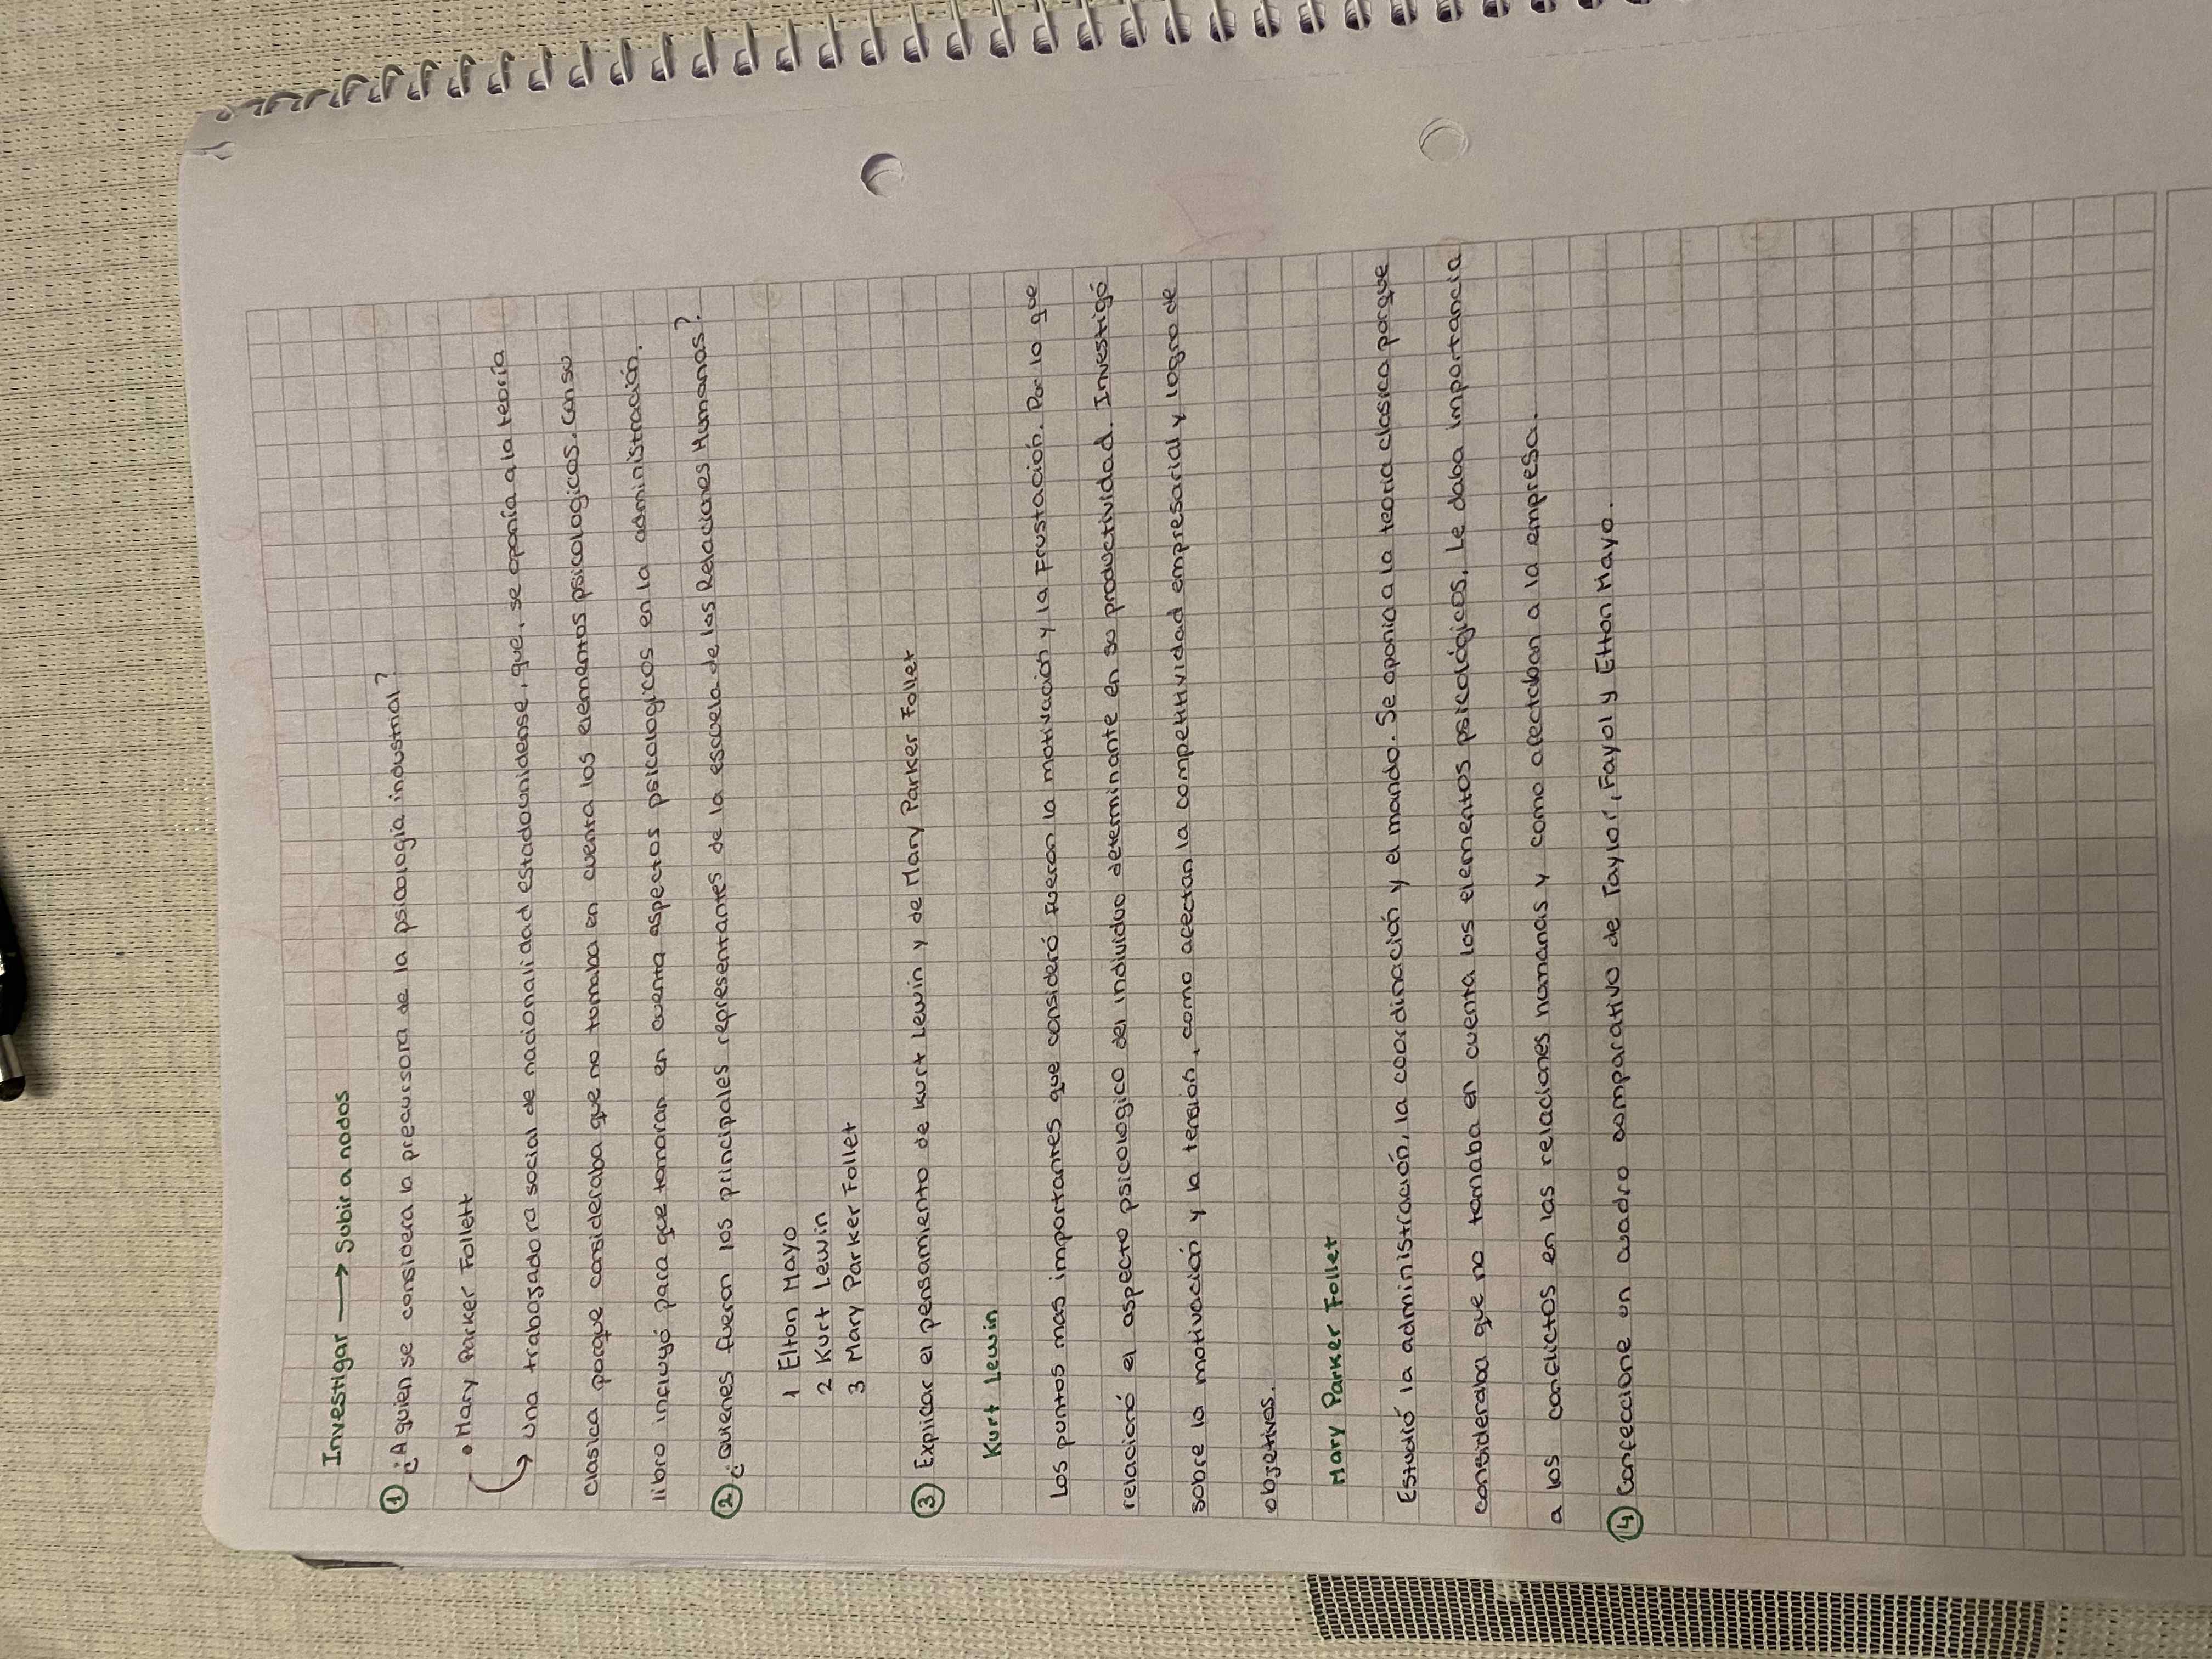 Investigar → Subir a nodos
① ¿A quien se considera la precursora de la psicología industrial?
• Mary Parker Follett
↪ Una trabajadora social de nacionalidad estadounidense, que, se oponía a la teoría
clasica porque consideraba que no tomaba en cuenta los elementos psicologicos. Con su
libro incluyó para que tomaran en cuenta aspectos psicologicos en la administración.
② ¿Quienes fueron los principales representantes de la escuela de las Relaciones Humanas?
1 Elton Mayo
2 Kurt Lewin
3 Mary Parker Follet
③ Explicar el pensamiento de Kurt Lewin y de Mary Parker Follet
Kurt Lewin
Los puntos mas importantes que consideró fueron la motivación y la Frustación. Por lo que
relacionó el aspecto psicologico del individuo determinante en su productividad. Investigó
sobre la motivación y la tensión, como afectan la competitividad empresarial y logro de
objetivos.
Mary Parker Follet
Estudió la administración, la coordinación y el mando. Se oponia a la teoria clasica porque
consideraba que no tomaba en cuenta los elementos psicológicos. Le daba importancia
a los conflictos en las relaciones humanas y como afectaban a la empresa.
④ Confeccione un cuadro comparativo de Taylor, Fayol y Elton Mayo.